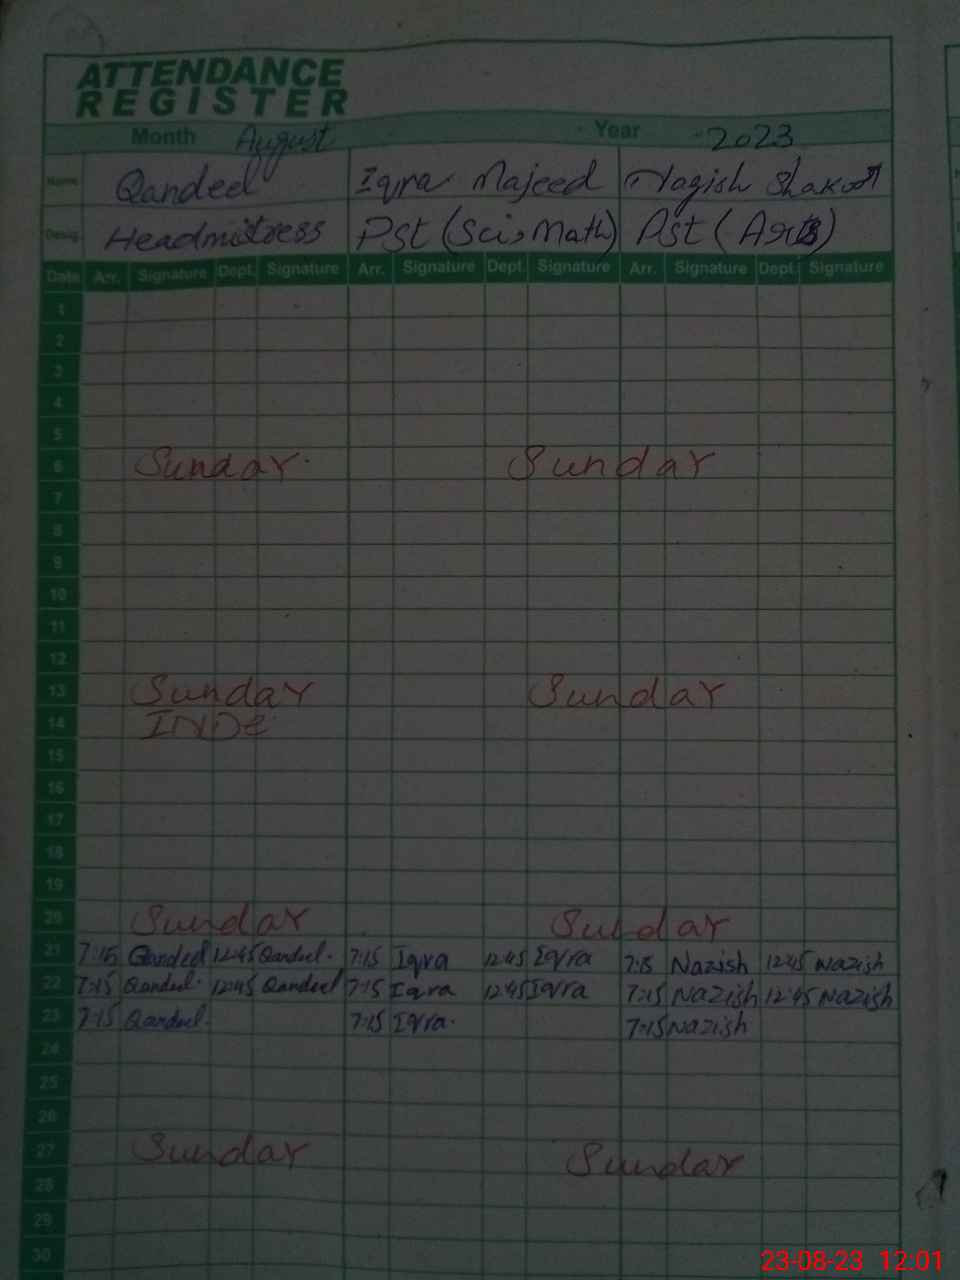 ATTENDANCE
REGISTER
Month August Year 2023
Name Qandeel Iqra Majeed Shakoor
Desig. Headmistress Pst (Sci, Math) Pst (Arts)
Date Arr. Signature Dept. Signature Arr. Signature Dept. Signature Arr. Signature Dept. Signature
1
2
3
4
5
6 Sunday Sunday
7
8
9
10
11
12
13 Sunday Sunday
14 INDE
15
16
17
18
19
20 Sunday Sunday
21 7:15 Qandeel 12:45 Qandeel. 7:15 Iqra 12:45 Iqra 7:15 Nazish 12:45 Nazish
22 7:15 Qandeel. 12:45 Qandeel 7:15 Iqra 12:45 Iqra 7:15 Nazish 12:45 Nazish
23 7:15 Qandeel. 7:15 Iqra. 7:15 Nazish
24
25
26
27 Sunday Sunday
28
29
30
23-08-23 12:01